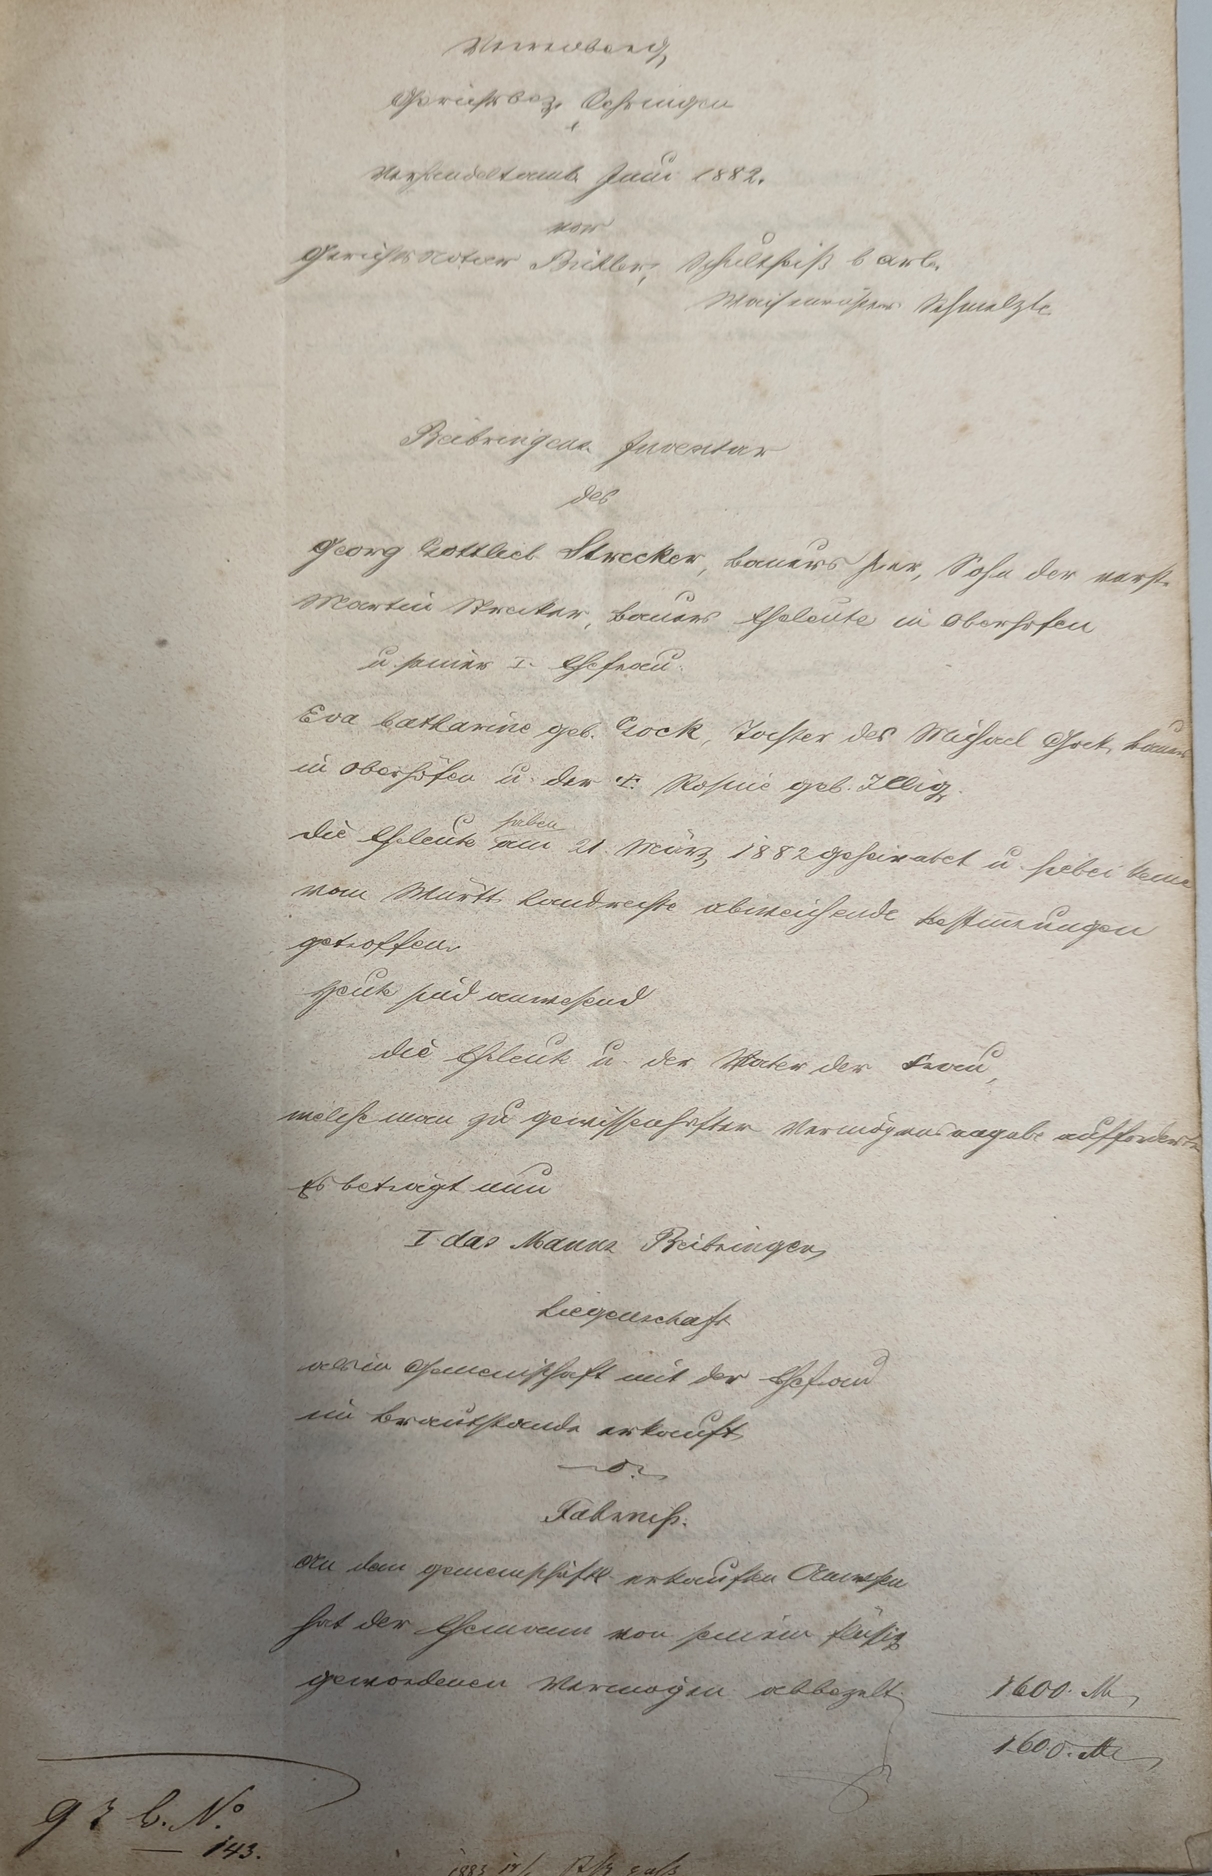 Verrenberg,
Gerichtsbez. Oehringen
Verhandelt am 2. Juni 1882.
vor
Gerichtsnotar Bühler, Schultheiß Carle
Waisenrichter Schmelzle
Beibringens Inventar
des
Georg Gottlieb Strecker, Bauers hier, Sohn der verst.
Martin Strecker, Bauers Eheleute in Oberhöfen
u. seiner I. Ehefrau
Eva Catharine geb. Gock, Tochter des Michael Gock, Bauers
in Oberhöfen u. der Rosine geb. Illig.
haben
Die Eheleute am 21. März 1882 geheiratet u. hiebei keine
vom Württ. Landrechte abweichende Bestimmungen
getroffen.
Heute sind anwesend
die Eheleute u. der Vater der Frau,
welche man zu gewissenhafter Vermögensangabe aufforderte
Es beträgt nun
I. das Manns Beibringen,
Liegenschaft
als in Gemeinschaft mit der Ehefrau
im Brautstande erkauft,
—0.
Fahrniß.
An dem gemeinschaftl. erkauften Anwesen
hat der Ehemann von seinem flüssig
gewordenen Vermögen abbezahlt 1600. M
1600. M
g Z B. No.
143.
1883